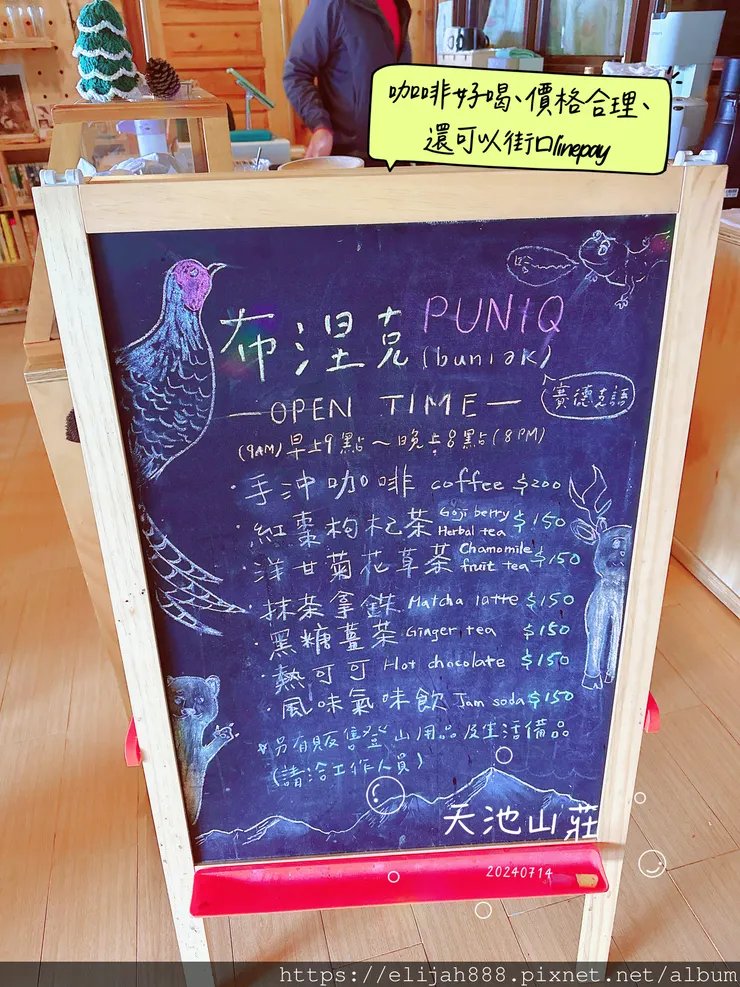 咖啡好喝、價格合理、
還可以街口linepay
布涅克 PUNIQ
(buniək)
賽德克語
—OPEN TIME—
(9AM)早上9點~晚上8點(8PM)
·手沖咖啡 coffee $200
·紅棗枸杞茶 Goji berry Herbal tea $150
·洋甘菊花草茶 Chamomile fruit tea $150
·抹茶拿鐵 Matcha latte $150
·黑糖薑茶 Ginger tea $150
·熱可可 Hot chocolate $150
·風味氣味飲 Jam soda $150
*另有販售登山用品及生活備品
(請洽工作人員)
天池山莊
20240714
https://elijah888.pixnet.net/album